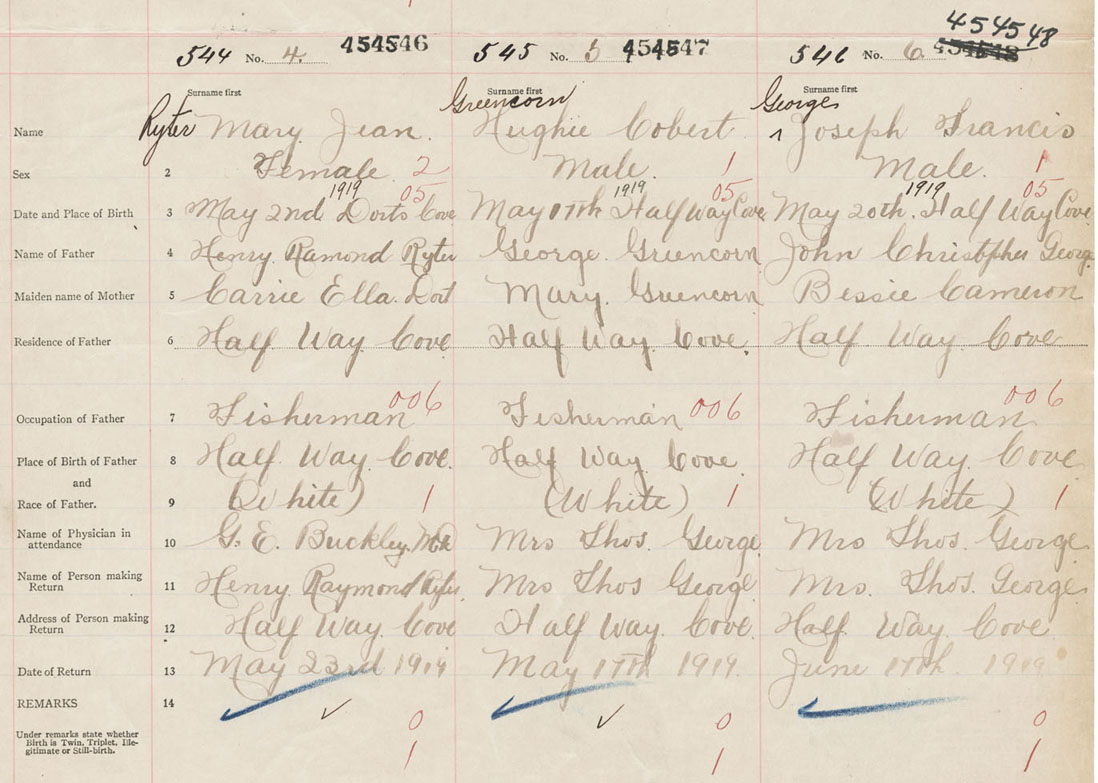 544 No. 4. 454546 545 No. 5 454547 546 No. 6. 454548 454548
Surname first Surname first Surname first
Ryter Greencorn Georges
Name Mary Jean. Hughie Cobert Joseph Francis
Sex 2 Female 2 Male. 1 Male. 1
1919 05 1919 05 1919 05
Date and Place of Birth 3 May 2nd Dorts Cove May 17th Half Way Cove May 20th. Half Way Cove
Name of Father 4 Henry Ramond Ryter George Greencorn John Christopher George
Maiden name of Mother 5 Carrie Ella Dort Mary. Greencorn Bessie Cameron
Residence of Father 6 Half Way Cove Half Way Cove. Half Way Cove
006 006 006
Occupation of Father 7 Fisherman Fisherman Fisherman
Place of Birth of Father 8 Half Way Cove. Half Way Cove. Half Way Cove
and
Race of Father. 9 (White) 1 (White) 1 (White) 1
Name of Physician in
attendance 10 G. E. Buckley. Mrs Thos. George Mrs Thos. George
Name of Person making
Return 11 Henry Raymond Ryter Mrs Thos George Mrs. Thos. George
Address of Person making
Return 12 Half Way Cove Half Way Cove. Half Way Cove
Date of Return 13 May 23rd 1919 May 17th 1919. June 17th. 1919
REMARKS 14
0 0 0
Under remarks state whether
Birth is Twin, Triplet, Ille-
gitimate or Still-birth.
1 1 1